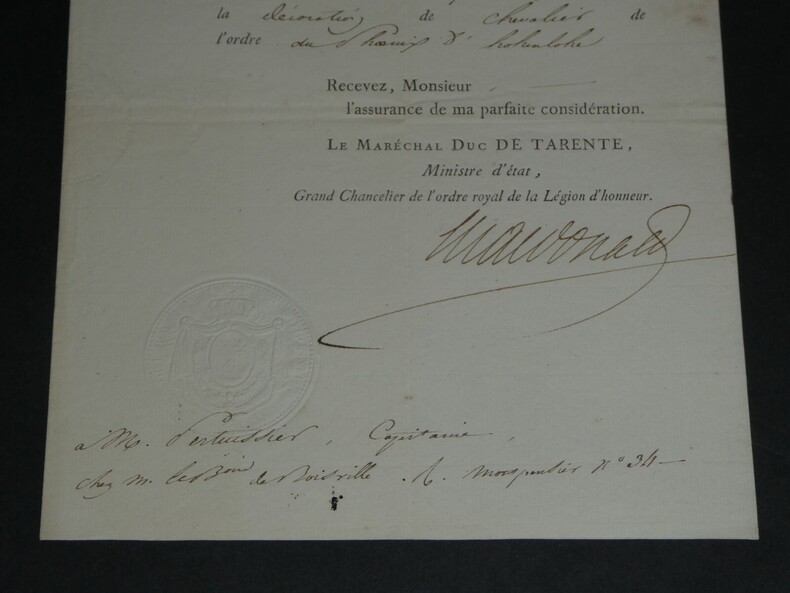 la décoration de chevalier de
l'ordre du Phoenix d'hohenlohe
Recevez, Monsieur,
l'assurance de ma parfaite considération.
LE MARÉCHAL DUC DE TARENTE,
Ministre d'état,
Grand Chancelier de l'ordre royal de la Légion d'honneur.
Macdonald
à M. Pertuissier, Capitaine,
chez m. le Bon de Boisville. R. Montpensier N° 34